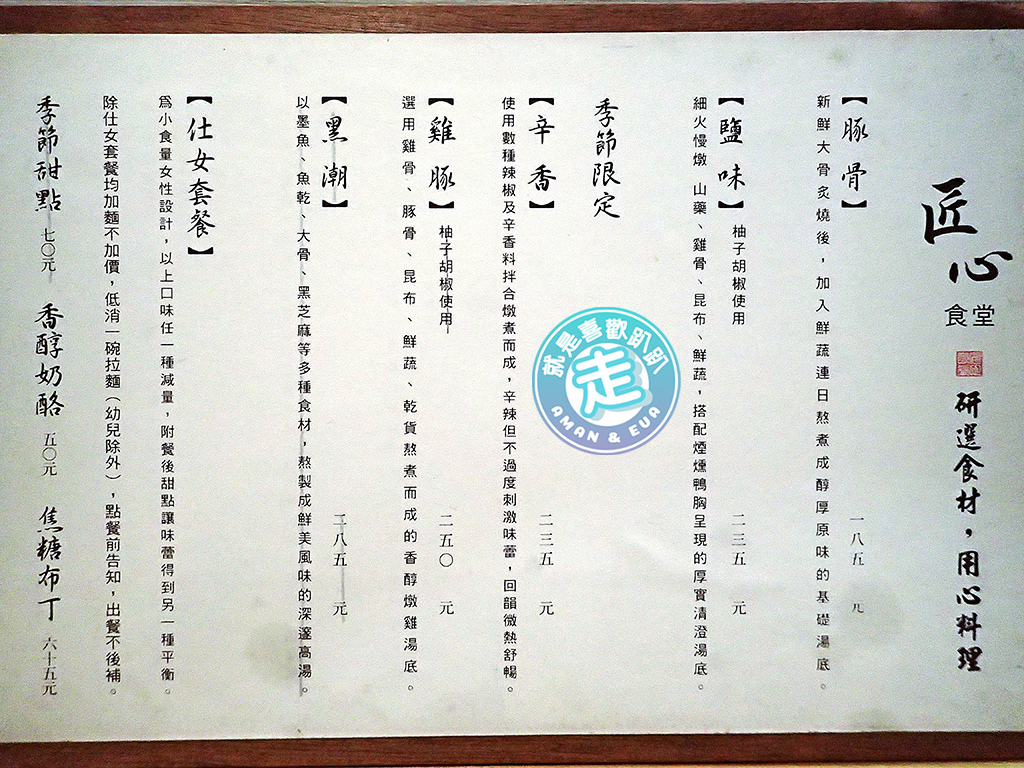 匠心
食堂
研選食材，用心料理
【豚骨】
一八五 元
新鮮大骨炙燒後，加入鮮蔬連日熬煮成醇厚原味的基礎湯底。
【鹽味】 柚子胡椒使用
二三五 元
細火慢燉 山藥、雞骨、昆布、鮮蔬，搭配煙燻鴨胸呈現的厚實清澄湯底。
季節限定
【辛香】
二三五 元
使用數種辣椒及辛香料拌合燉煮而成，辛辣但不過度刺激味蕾，回韻微熱舒暢。
【雞豚】 柚子胡椒使用
二五〇 元
選用雞骨、豚骨、昆布、鮮蔬、乾貨熬煮而成的香醇燉雞湯底。
【黑潮】
二八五 元
以墨魚、魚乾、大骨、黑芝麻等多種食材，熬製成鮮美風味的深邃高湯。
【仕女套餐】
為小食量女性設計，以上口味任一種減量，附餐後甜點讓味蕾得到另一種平衡。
除仕女套餐均加麵不加價，低消一碗拉麵（幼兒除外），點餐前告知，出餐不後補。
季節甜點 七〇元 香醇奶酪 五〇元 焦糖布丁 六十五元
就是喜歡趴趴
走
AMAN & EVA